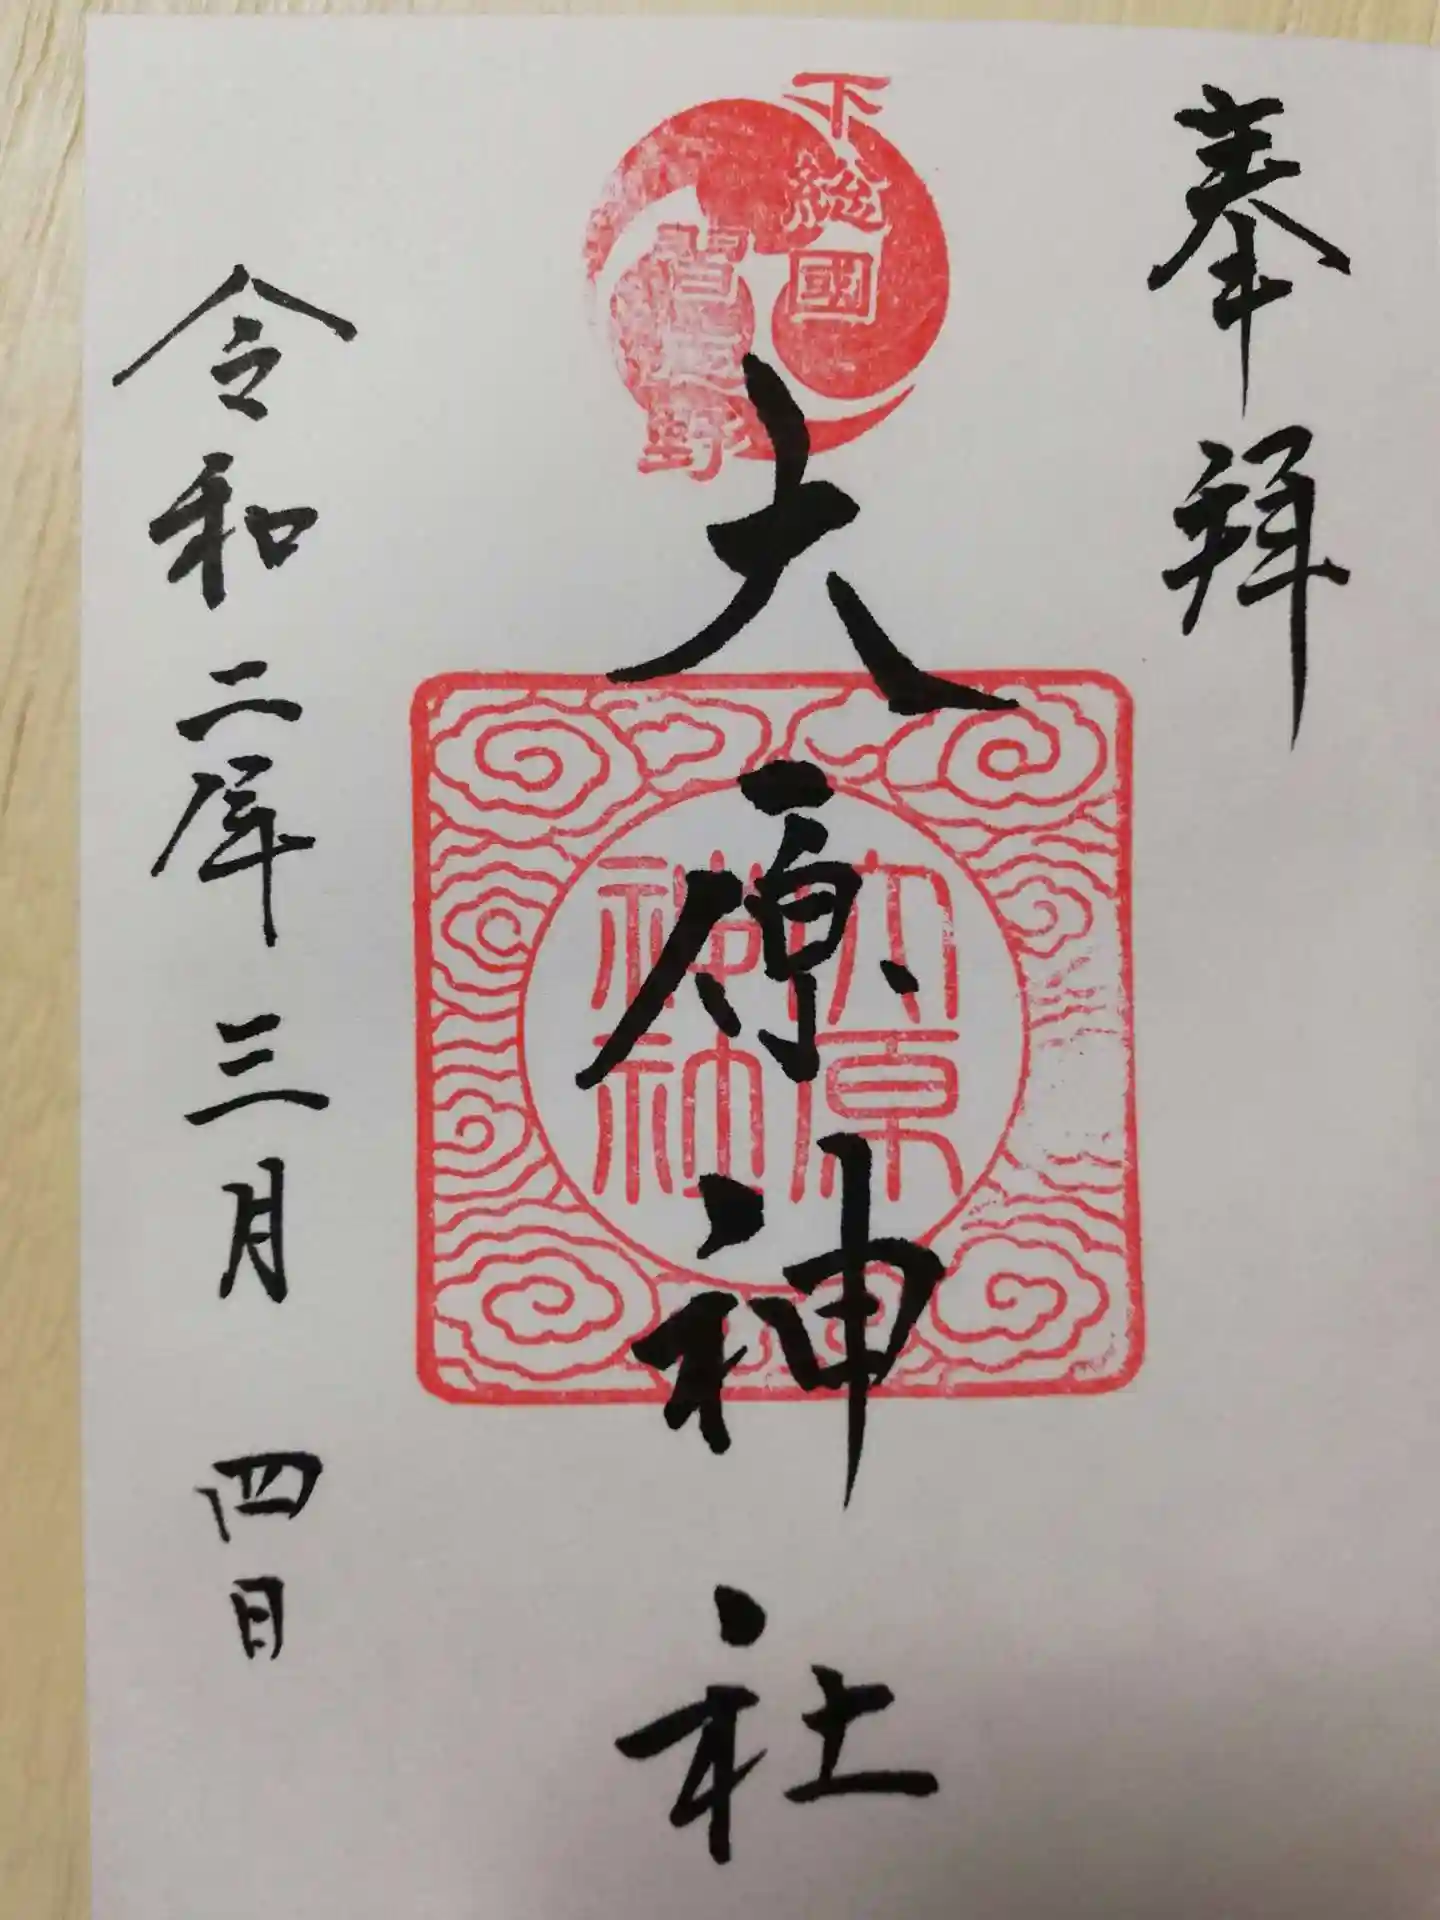 奉拜
下總國
習志野
大原神社
大原
神社
令和二年三月四日